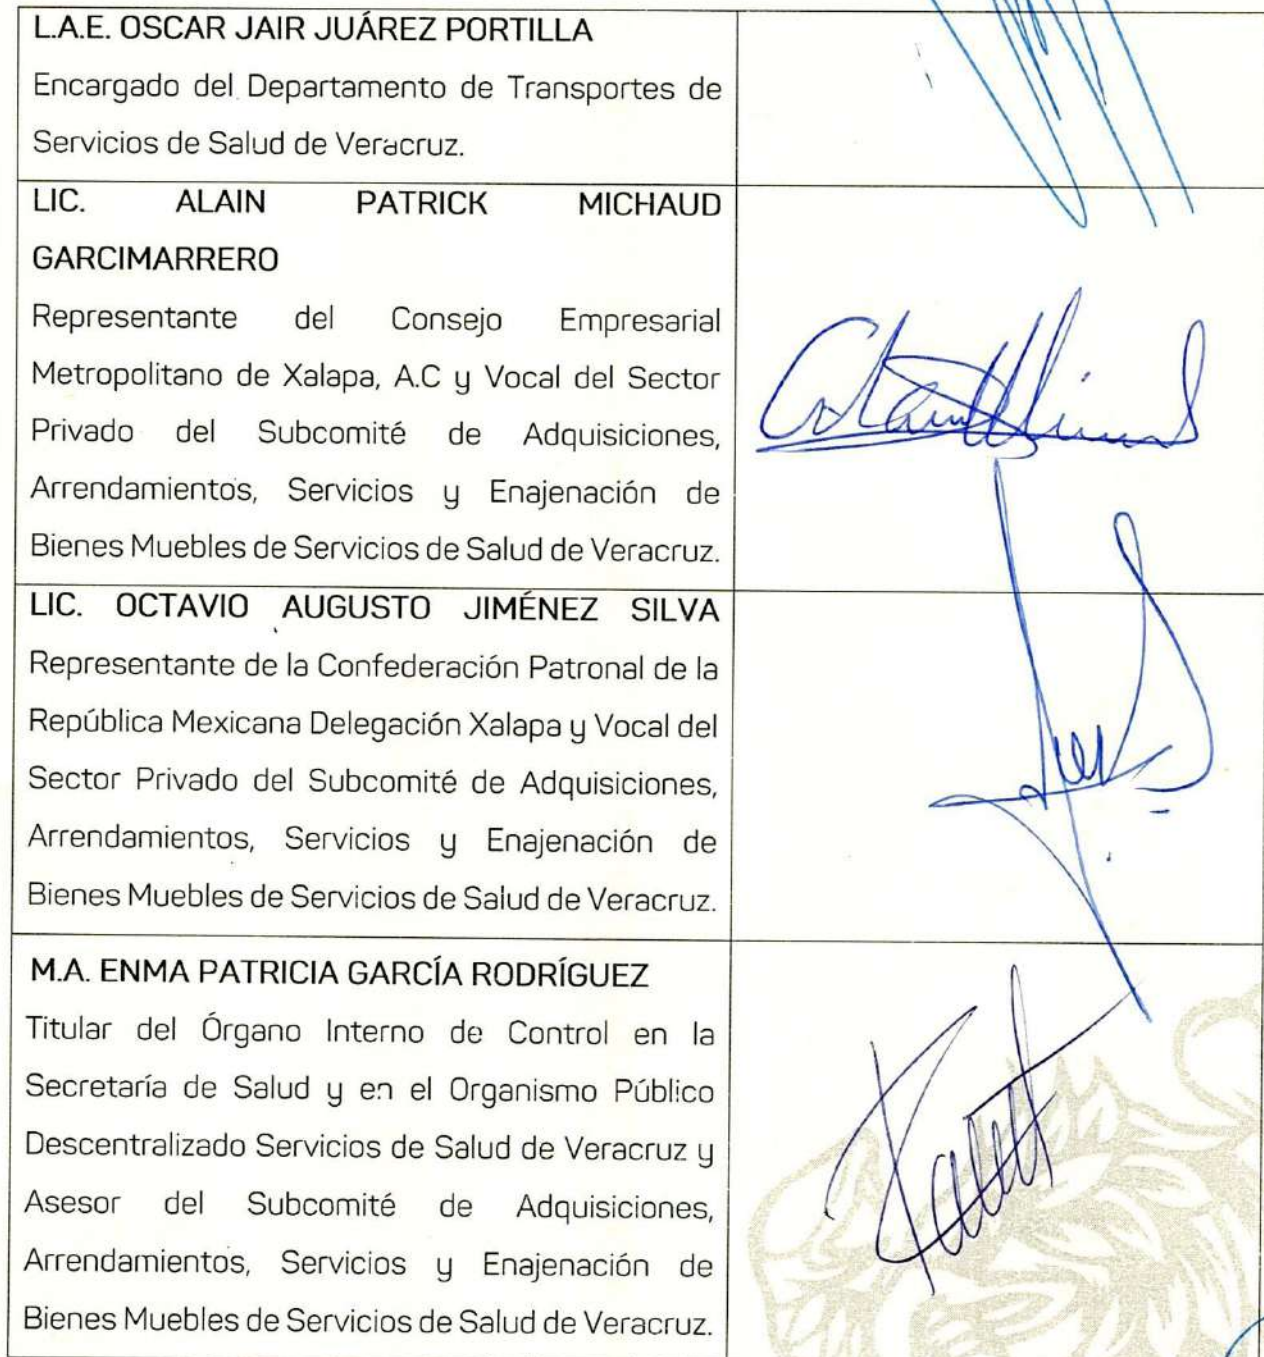 L.A.E. OSCAR JAIR JUÁREZ PORTILLA
Encargado del Departamento de Transportes de
Servicios de Salud de Veracruz.
LIC. ALAIN PATRICK MICHAUD
GARCIMARRERO
Representante del Consejo Empresarial
Metropolitano de Xalapa, A.C y Vocal del Sector
Privado del Subcomité de Adquisiciones,
Arrendamientos, Servicios y Enajenación de
Bienes Muebles de Servicios de Salud de Veracruz.
LIC. OCTAVIO AUGUSTO JIMÉNEZ SILVA
Representante de la Confederación Patronal de la
República Mexicana Delegación Xalapa y Vocal del
Sector Privado del Subcomité de Adquisiciones,
Arrendamientos, Servicios y Enajenación de
Bienes Muebles de Servicios de Salud de Veracruz.
M.A. ENMA PATRICIA GARCÍA RODRÍGUEZ
Titular del Órgano Interno de Control en la
Secretaría de Salud y en el Organismo Público
Descentralizado Servicios de Salud de Veracruz y
Asesor del Subcomité de Adquisiciones,
Arrendamientos, Servicios y Enajenación de
Bienes Muebles de Servicios de Salud de Veracruz.